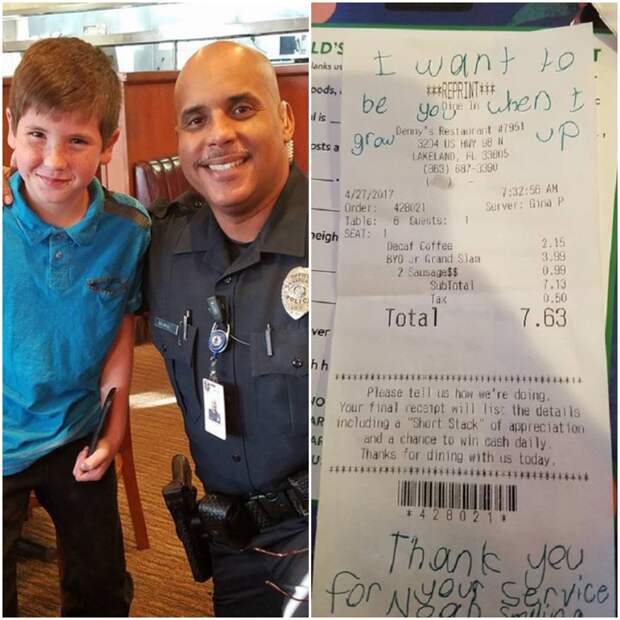 I want to
be you when I
grow up
***REPRINT***
Dine In
Denny's Restaurant #7951
3204 US HWY 98 N
LAKELAND, FL 33805
(863) 687-3390
4/27/2017 7:32:56 AM
Order: 428021 Server: Gina P
Table: 6 Guests: 1
SEAT: 1
Decaf Coffee 2.15
BYO Jr Grand Slam 3.99
2 Sausage$$ 0.99
SubTotal 7.13
Tax 0.50
Total 7.63
Please tell us how we're doing.
Your final receipt will list the details
including a "Short Stack" of appreciation
and a chance to win cash daily.
Thanks for dining with us today.
*428021*
Thank you
for your service
Noah Smiling